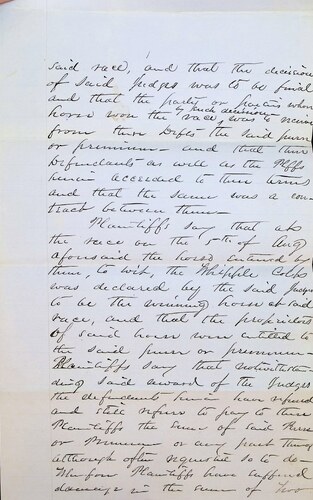 said race, and that the decision
of said Judges was to be final
and that the party or parties whose
by such decision
horse won the race, was to receive
from these Defts the said purse
or premium - and that these
Defendants as well as the Plffs
herein acceeded to these terms
and that the same was a con-
tract between them -
Plaintiffs say that at
the race on the 5th of Aug
aforesaid the horse entered by
them, to wit, the Whipple Colt
was declared by the said Judges
to be the winning horse at said
race, and that the proprietors
of said horse were entitled to
the said purse or premium -
Plaintiffs say that notwithstan-
ding said award of the Judges
the defendants herein have refused
and still refuse to pay to these
Plaintiffs the sum of said Purse
or Premium or any part thereof
although often requested so to do -
Wherefore Plaintiffs have suffered
damage in the sum of Two